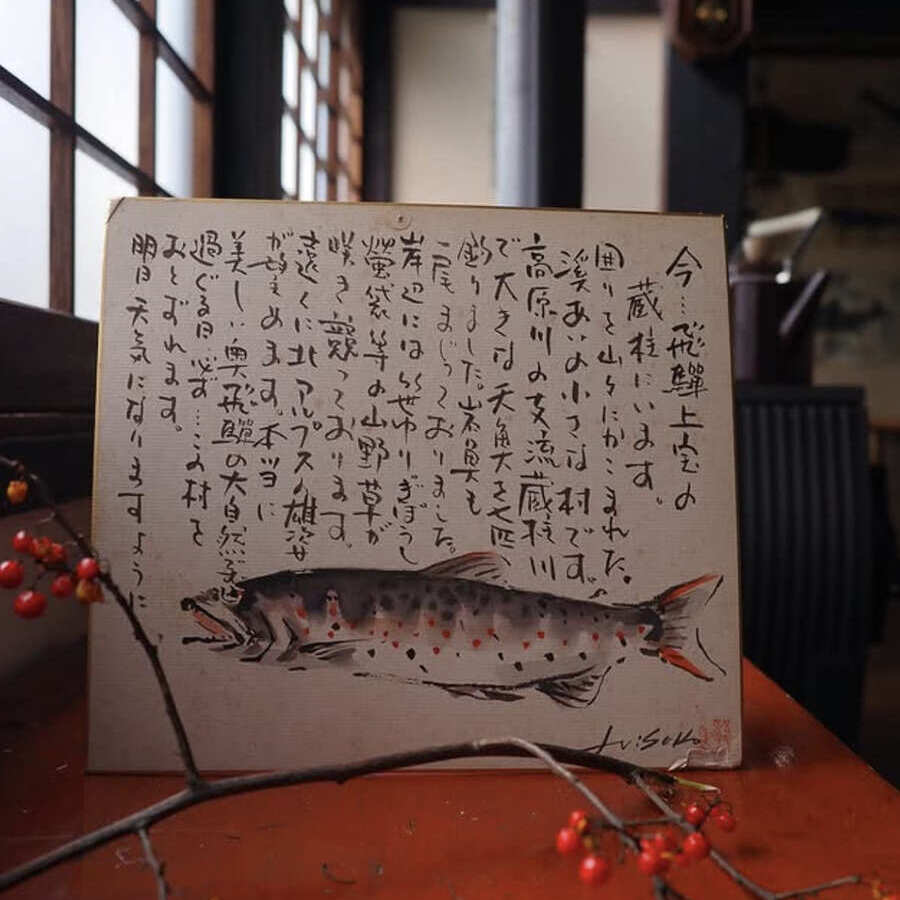 今…飛驒上宝の
蔵柱にいます。
囲りを山々にかこまれた。
渓あいの小さな村です。
高原川の支流蔵柱川
で大きな天魚を七匹、
釣りました。岩魚も
二尾まじっておりました。
岸辺には笹ゆりぎぼうし
螢袋等の山野草が
咲き競っております。
遠くに北アルプスの雄姿
が望めます。本当に
美しい奥飛驒の大自然
過ぐる日必ず…この村を
おとずれます。
明日天気になりますように